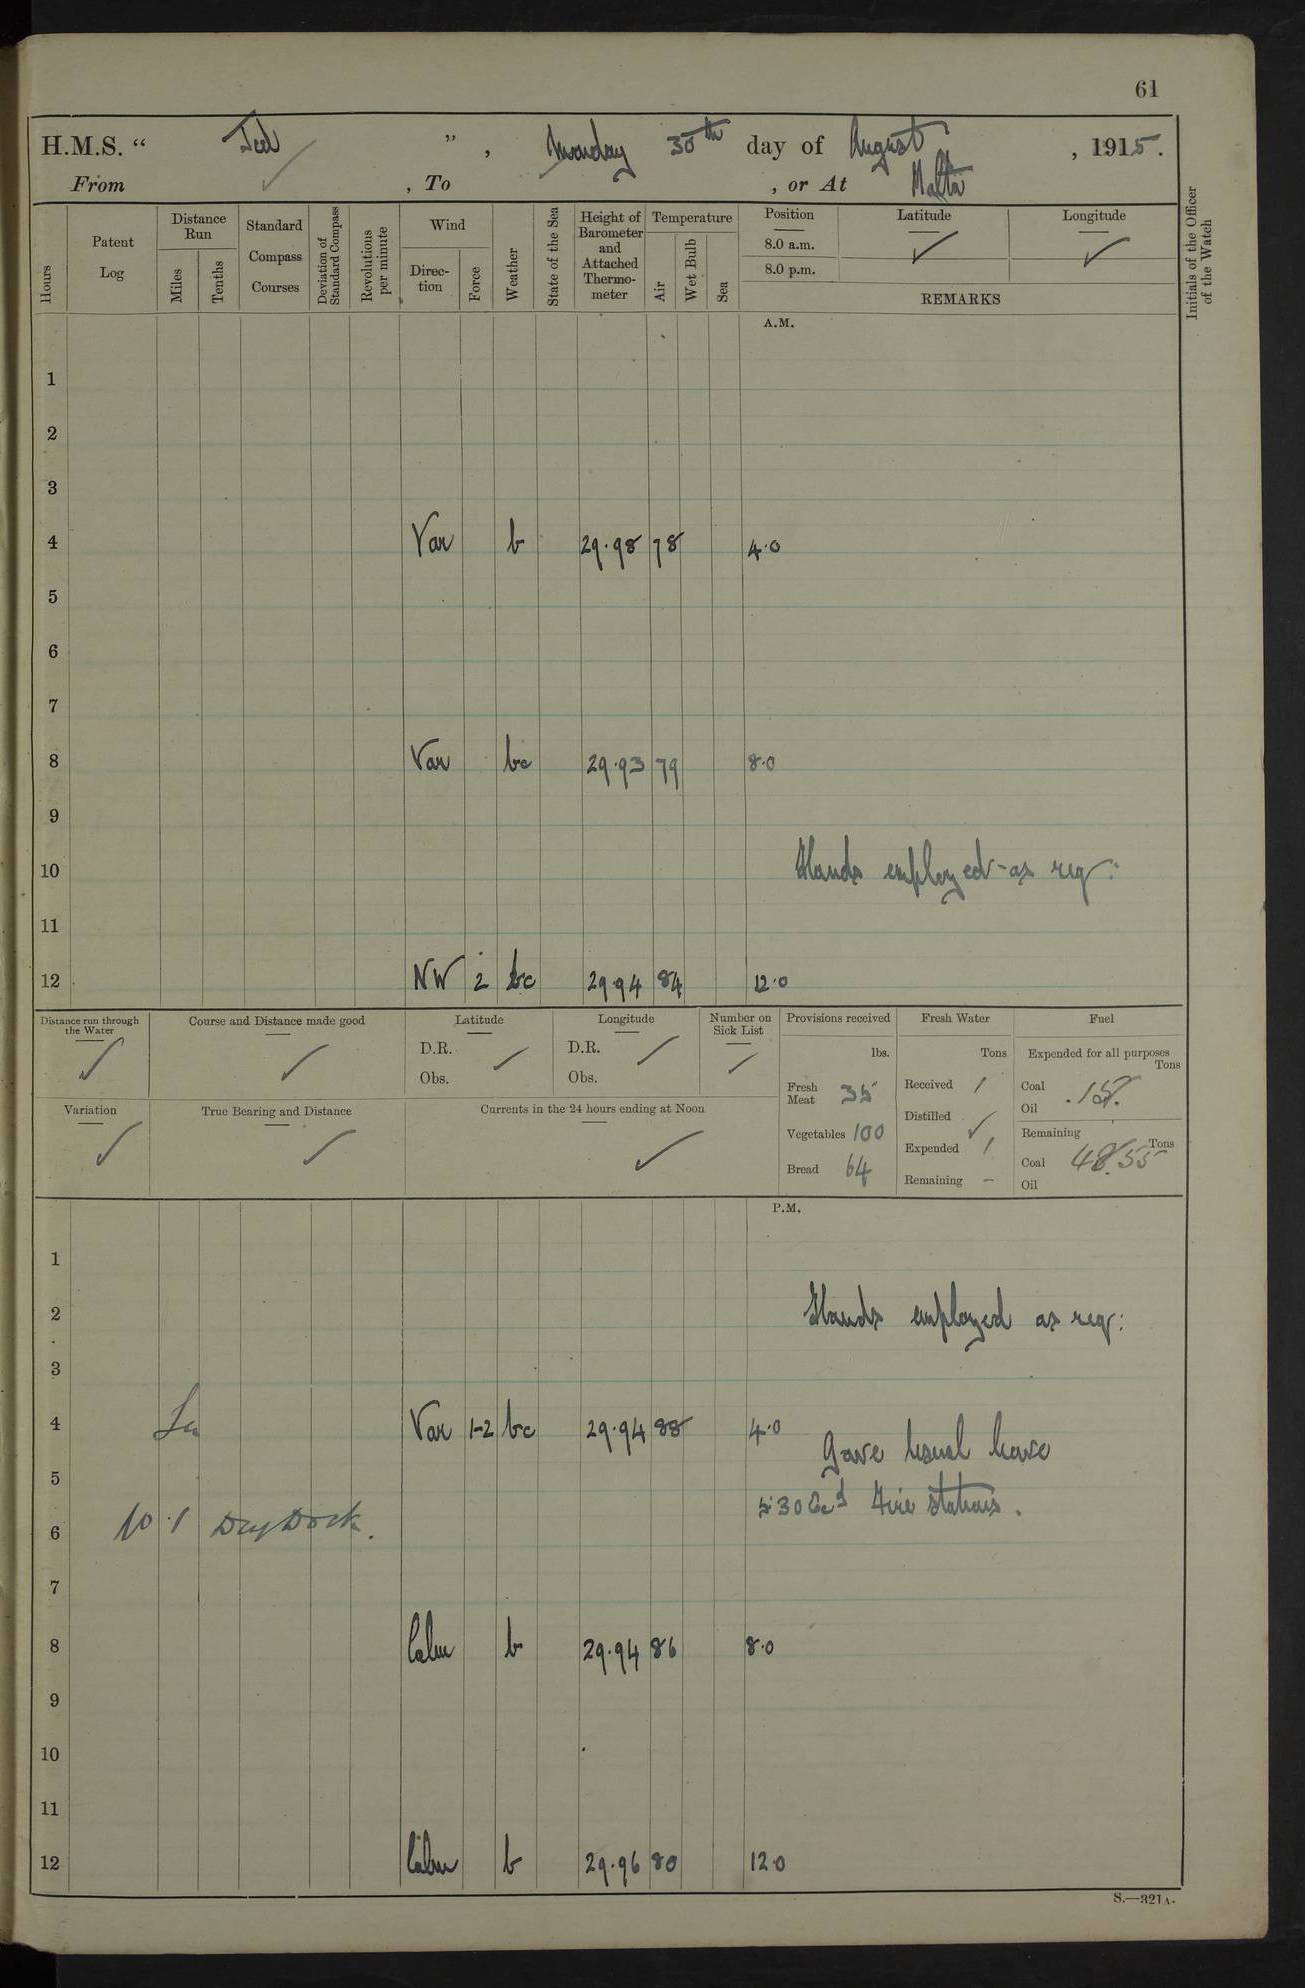 61
H.M.S. “ ” , Monday 30th day of August , 1915.
From , To , or At Malta
Hours
Patent Log
Distance Run
Miles
Tenths
Standard Compass Courses
Deviation of Standard Compass
Revolutions per minute
Wind
Direc-tion
Force
Weather
State of the Sea
Height of Barometer and Attached Thermo-meter
Temperature
Air
Wet Bulb
Sea
Position
8.0 a.m.
8.0 p.m.
Latitude
Longitude
REMARKS
Initials of the Officer of the Watch
A.M.
1
2
3
4 Var b 29.98 78 4.0
5
6
7
8 Var bc 29.93 79 8.0
9
10 Hands employed as req:
11
12 NW 2 bc 29.94 84 12.0
Distance run through the Water
Course and Distance made good
Latitude
D.R.
Obs.
Longitude
D.R.
Obs.
Number on Sick List
Provisions received
lbs.
Fresh Meat 35
Vegetables 100
Bread 64
Fresh Water
Tons
Received 1
Distilled
Expended 1
Remaining -
Fuel
Expended for all purposes
Tons
Coal .15
Oil
Remaining
Tons
Coal 48.55
Oil
Variation
True Bearing and Distance
Currents in the 24 hours ending at Noon
P.M.
1
2 Hands employed as req:
3
4 In Var 1-2 bc 29.94 88 4.0
Gave usual leave
5
5 30 Exd Fire stations.
6 No 1 Dry Dock.
7
8 Calm b 29.94 86 8.0
9
10
11
12 Calm b 29.96 80 12.0
S.—321A.